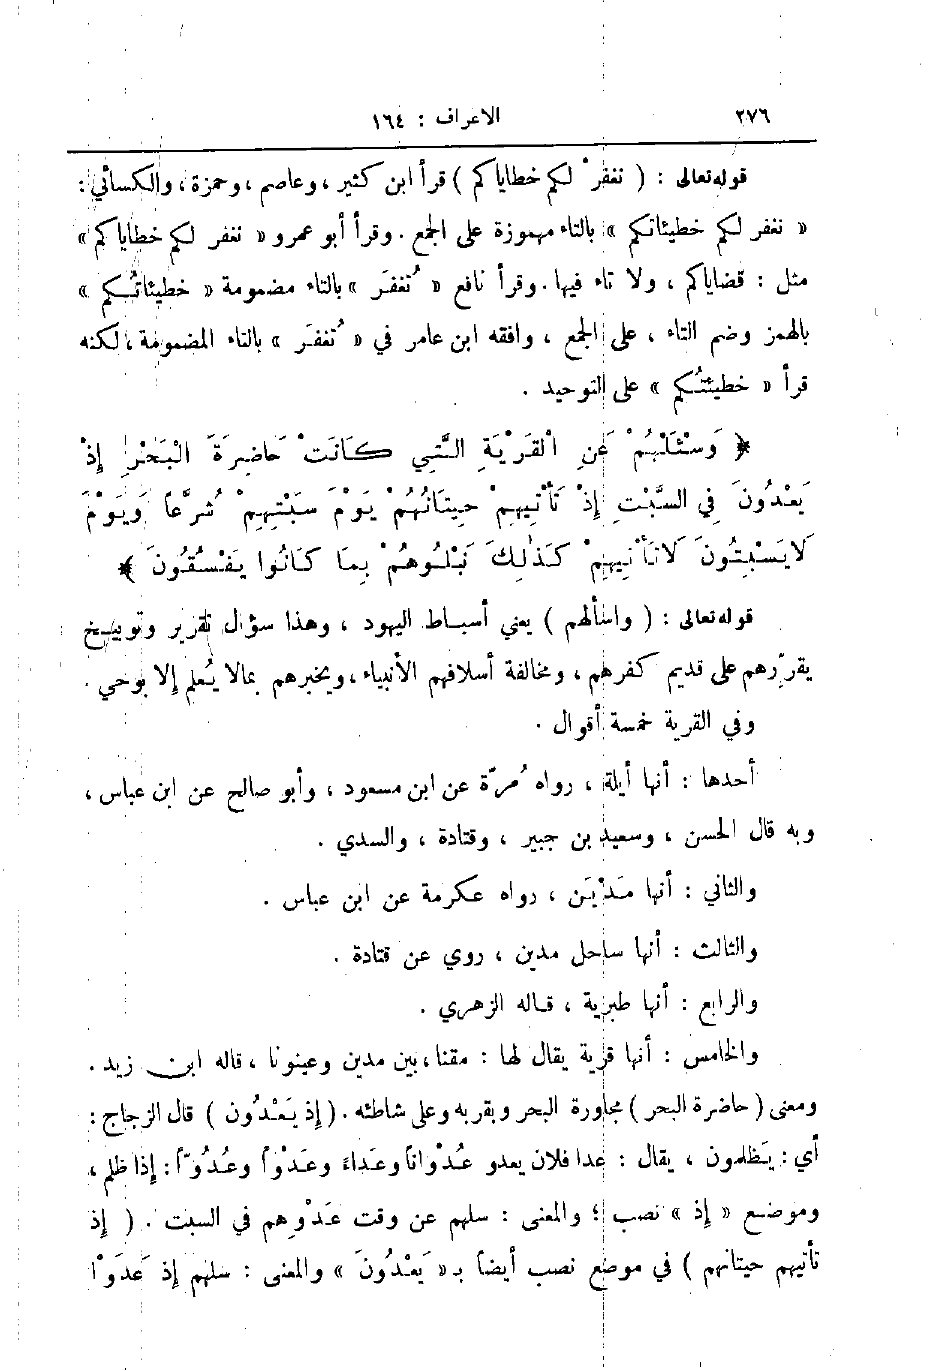 ٢٧٦ الاعراف : ١٦٤
قوله تعالى : ( نغفرْ لكم خطاياكم ) قرأ ابن كثير ، وعاصم ، وحمزة ، والكسائي :
« نغفر لكم خطيئاتكم » بالتاء مهموزة على الجمع . وقرأ أبو عمرو « نغفر لكم خطاياكم »
مثل : قضاياكم ، ولا تاء فيها . وقرأ نافع « تُغفَر » بالتاء مضمومة « خطيئاتُكم »
بالهمز وضم التاء ، على الجمع ، وافقه ابن عامر في « تُغفَر » بالتاء المضمومة ، لكنه
قرأ « خطيئتُكم » على التوحيد .
﴿ وَسْئَلْهُمْ عَنِ الْقَرْيَةِ الَّتِي كَانَتْ حَاضِرَةَ الْبَحْرِ إِذْ
يَعْدُونَ فِي السَّبْتِ إِذْ تَأْتِيهِمْ حِيتَانُهُمْ يَوْمَ سَبْتِهِمْ شُرَّعاً وَيَوْمَ
لَايَسْبِتُونَ لَاتَأْتِيهِمْ كَذٰلِكَ نَبْلُوهُمْ بِمَا كَانُوا يَفْسُقُونَ ﴾
قوله تعالى : ( واسألهم ) يعني أسباط اليهود ، وهذا سؤال تقرير وتوبيخ
يقررّهم على قديم كفرهم ، ومخالفة أسلافهم الأنبياء ، ويخبرهم بمالا يُعلم إلا بوحي .
وفي القرية خمسة أقوال .
أحدها : أنها أيلة ، رواه مُرّة عن ابن مسعود ، وأبو صالح عن ابن عباس ،
وبه قال الحسن ، وسعيد بن جبير ، وقتادة ، والسدي .
والثاني : أنها مَدْيَن ، رواه عكرمة عن ابن عباس .
والثالث : أنها ساحل مدين ، روي عن قتادة .
والرابع : أنها طبرية ، قاله الزهري .
والخامس : أنها قرية يقال لها : مقنا ، بين مدين وعينونا ، قاله ابن زيد .
ومعنى ( حاضرة البحر ) مجاورة البحر وبقربه وعلى شاطئه . ( إذ يَعْدُون ) قال الزجاج :
أي : يَظلمون ، يقال : عدا فلان يعدو عُدْواناً وعَداءً وعَدْواً وعُدُوّاً : إذا ظلم ،
وموضع « إذ » نصب ؛ والمعنى : سلهم عن وقت عَدْوِهم في السبت . ( إذ
تأتيهم حيتانهم ) في موضع نصب أيضاً بـ « يَعْدُونَ » والمعنى : سلهم إذ عَدَوْا